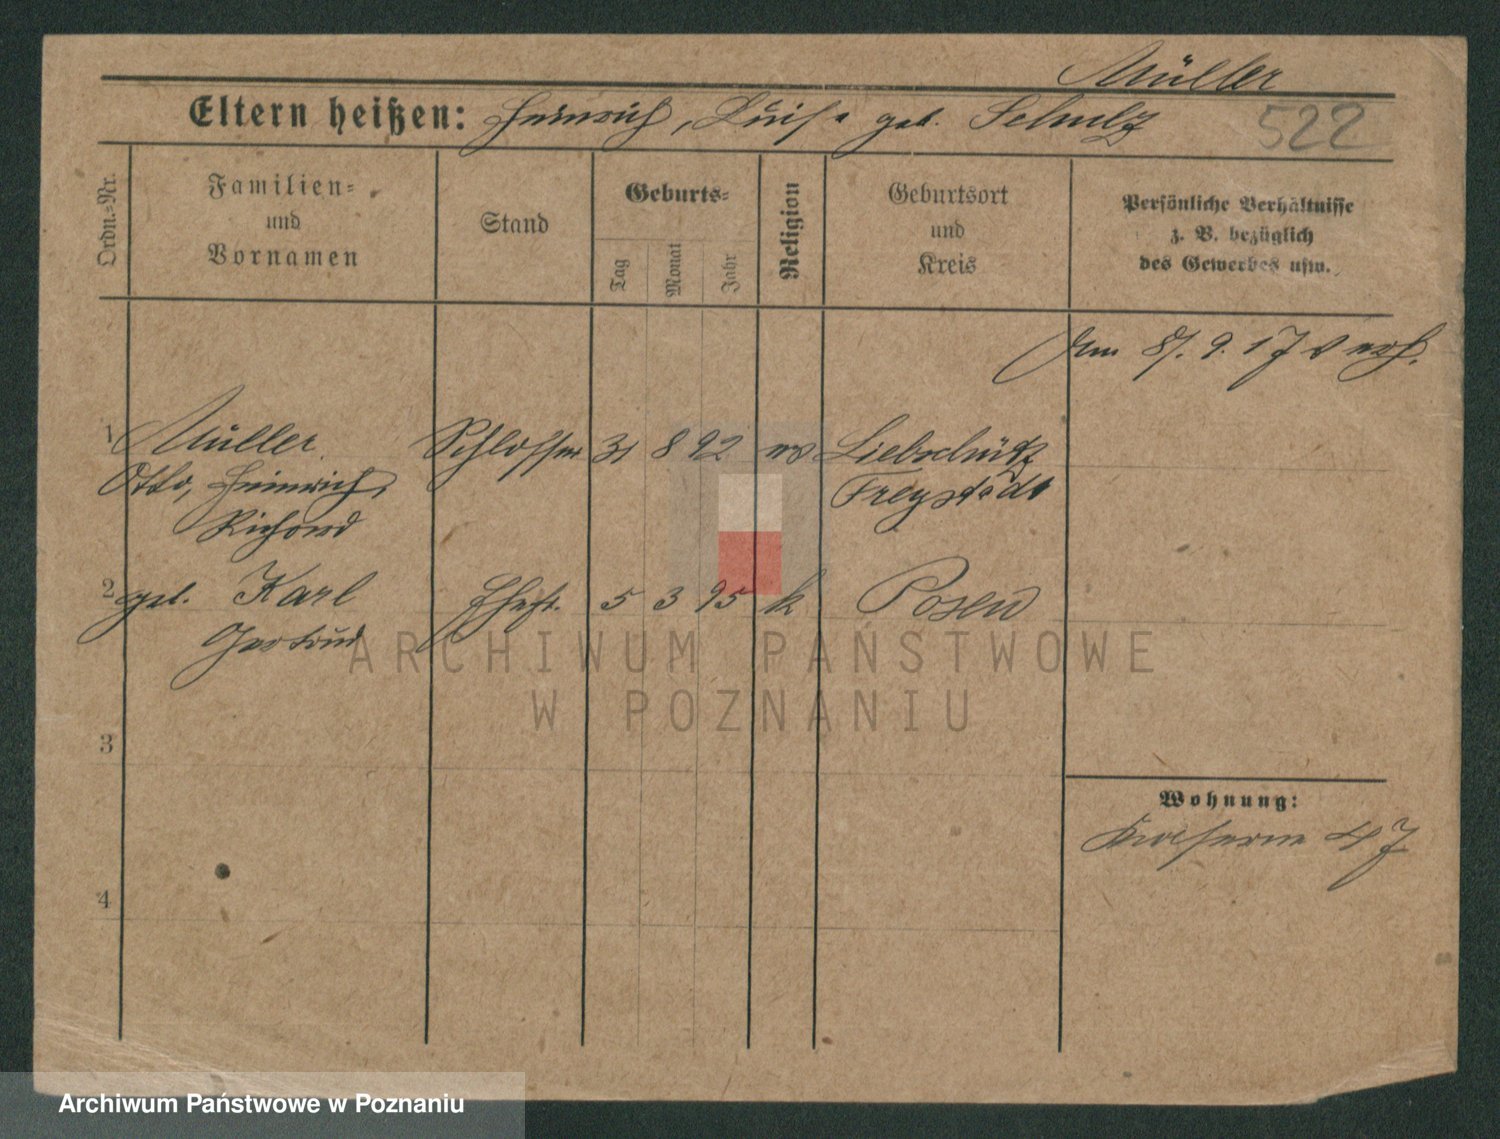 Müller
Eltern heißen: Heinrich, Luise geb. Schulz
522
Ordn.=Nr.
Familien=
und
Vornamen
Stand
Geburts=
Tag
Monat
Jahr
Religion
Geburtsort
und
Kreis
Persönliche Verhältnisse
z. B. bezüglich
des Gewerbes usw.
Am 8/. 9. 17 verh.
1 Müller Schlosser 31 8 92 ev Liebschütz
Otto, Heinrich, Freystadt
Richard
2 geb. Karl Ehefr. 5 3 95 k Posen
Gertrud
ARCHIWUM PAŃSTWOWE
W POZNANIU
3
Wohnung:
Kaserne 47
4
Archiwum Państwowe w Poznaniu